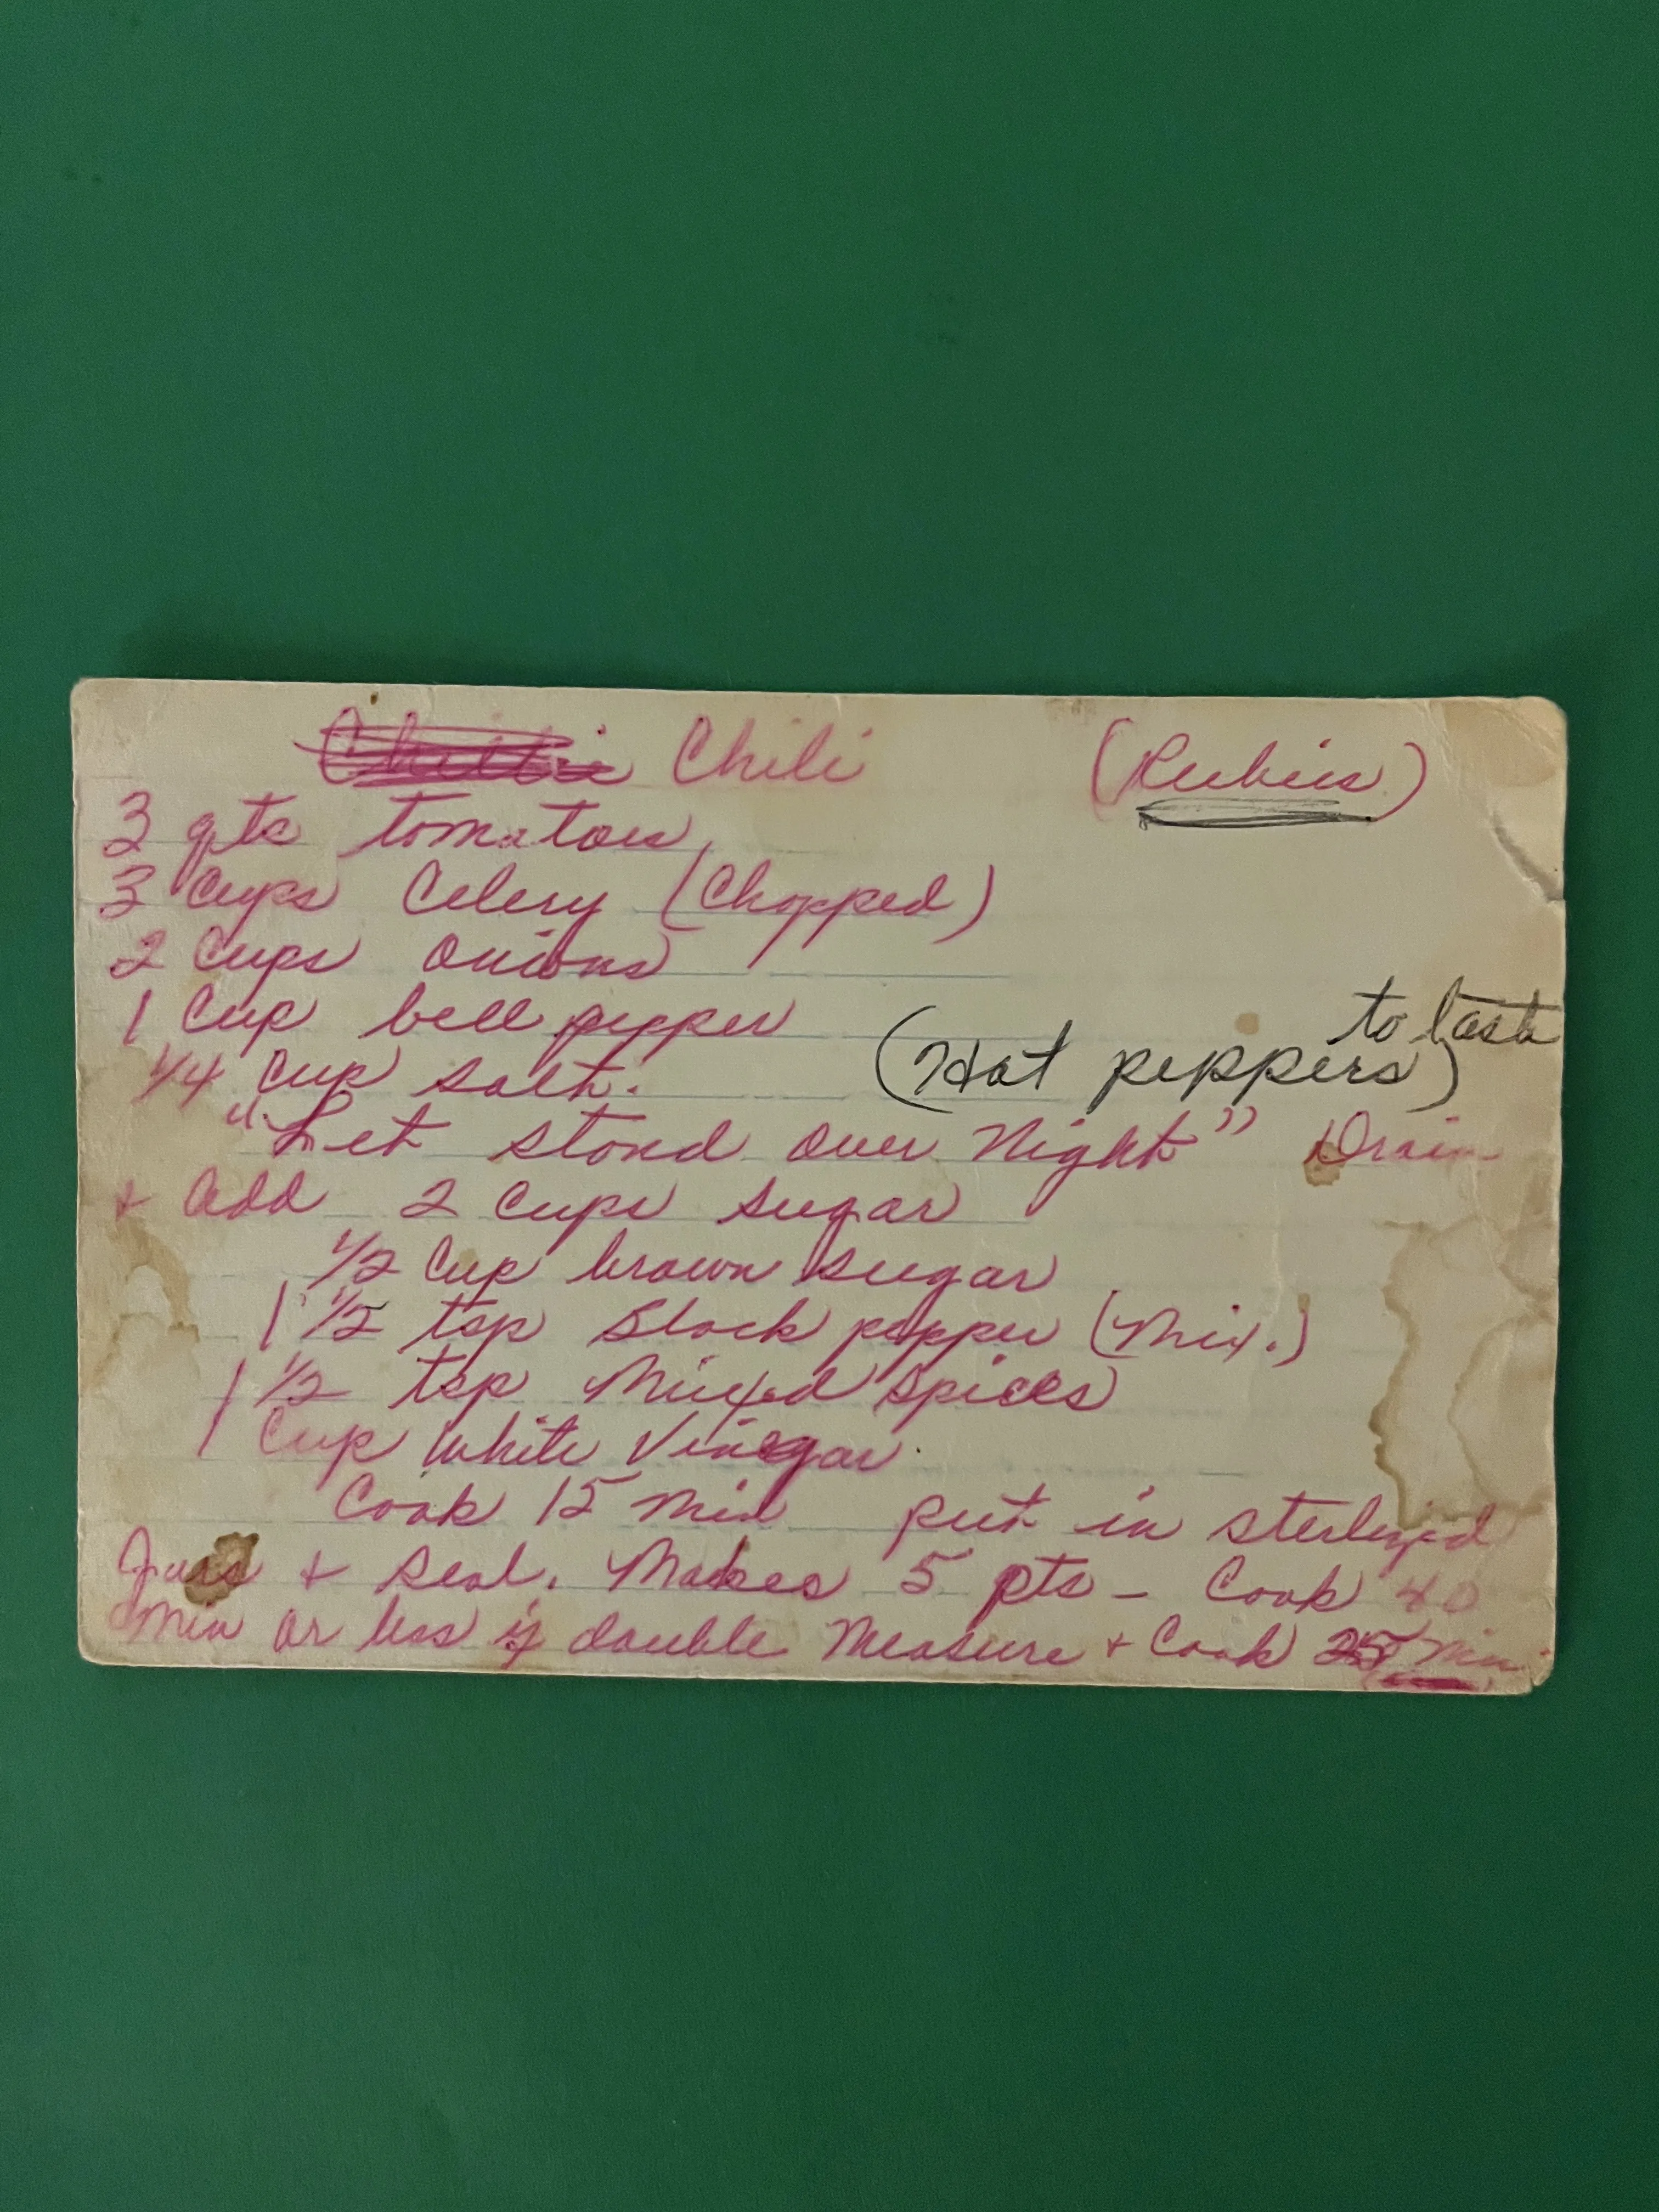 Chili (Rubies)
3 qts tomatoes
3 Cups Celery (Chopped)
2 Cups Onions
1 Cup bell pepper
to taste
1/4 Cup salt. (Hot peppers)
"Let stand over Night" Drain
+ Add 2 Cups sugar
1/2 Cup brown sugar
1 1/2 tsp Black pepper (Mix.)
1 1/2 tsp Mixed Spices
1 Cup White Vinegar
Cook 15 Min put in sterlized
Jars + Seal. Makes 5 pts - Cook 40
Min or less if double Measure + Cook 25 Min